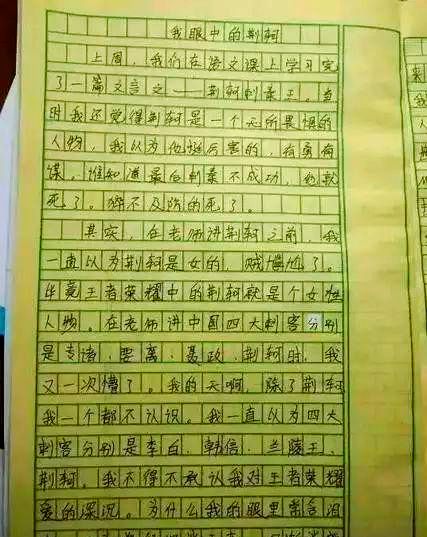 我眼中的荆轲
上周，我们在语文课上学习完
了一篇文言文——荆轲刺秦王。当
时我还觉得荆轲是一个无所畏惧的
人物，我认为他挺厉害的，有勇有
谋。谁知道最后刺秦不成功，他就
死了。猝不及防的死了。
其实，在老师讲荆轲之前，我
一直以为荆轲是女的，贼尴尬了。
毕竟王者荣耀中的荆轲就是个女性
人物。在老师讲中国四大刺客分别
是专诸、要离、聂政、荆轲时，我
又一次懵了。我的天啊，除了荆轲
我一个都不认识。我一直以为四大
刺客分别是李白、韩信、兰陵王、
荆轲。我不得不承认我对王者荣耀
爱的深沉。为什么我的眼里常含泪